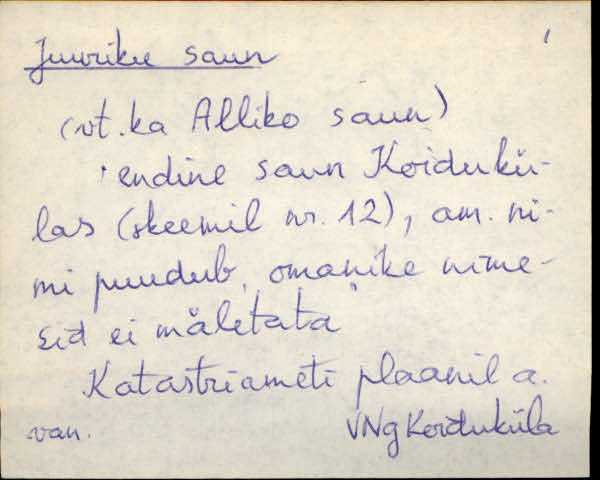 Juuriku saun
(vt. ka Alliko saun)
endine saun Koidukü-
las (skeemil nr. 12), am. ni-
mi puudub, omanike nime-
sid ei mäletata
Katastriameti plaanil a.
van. VNg Koiduküla